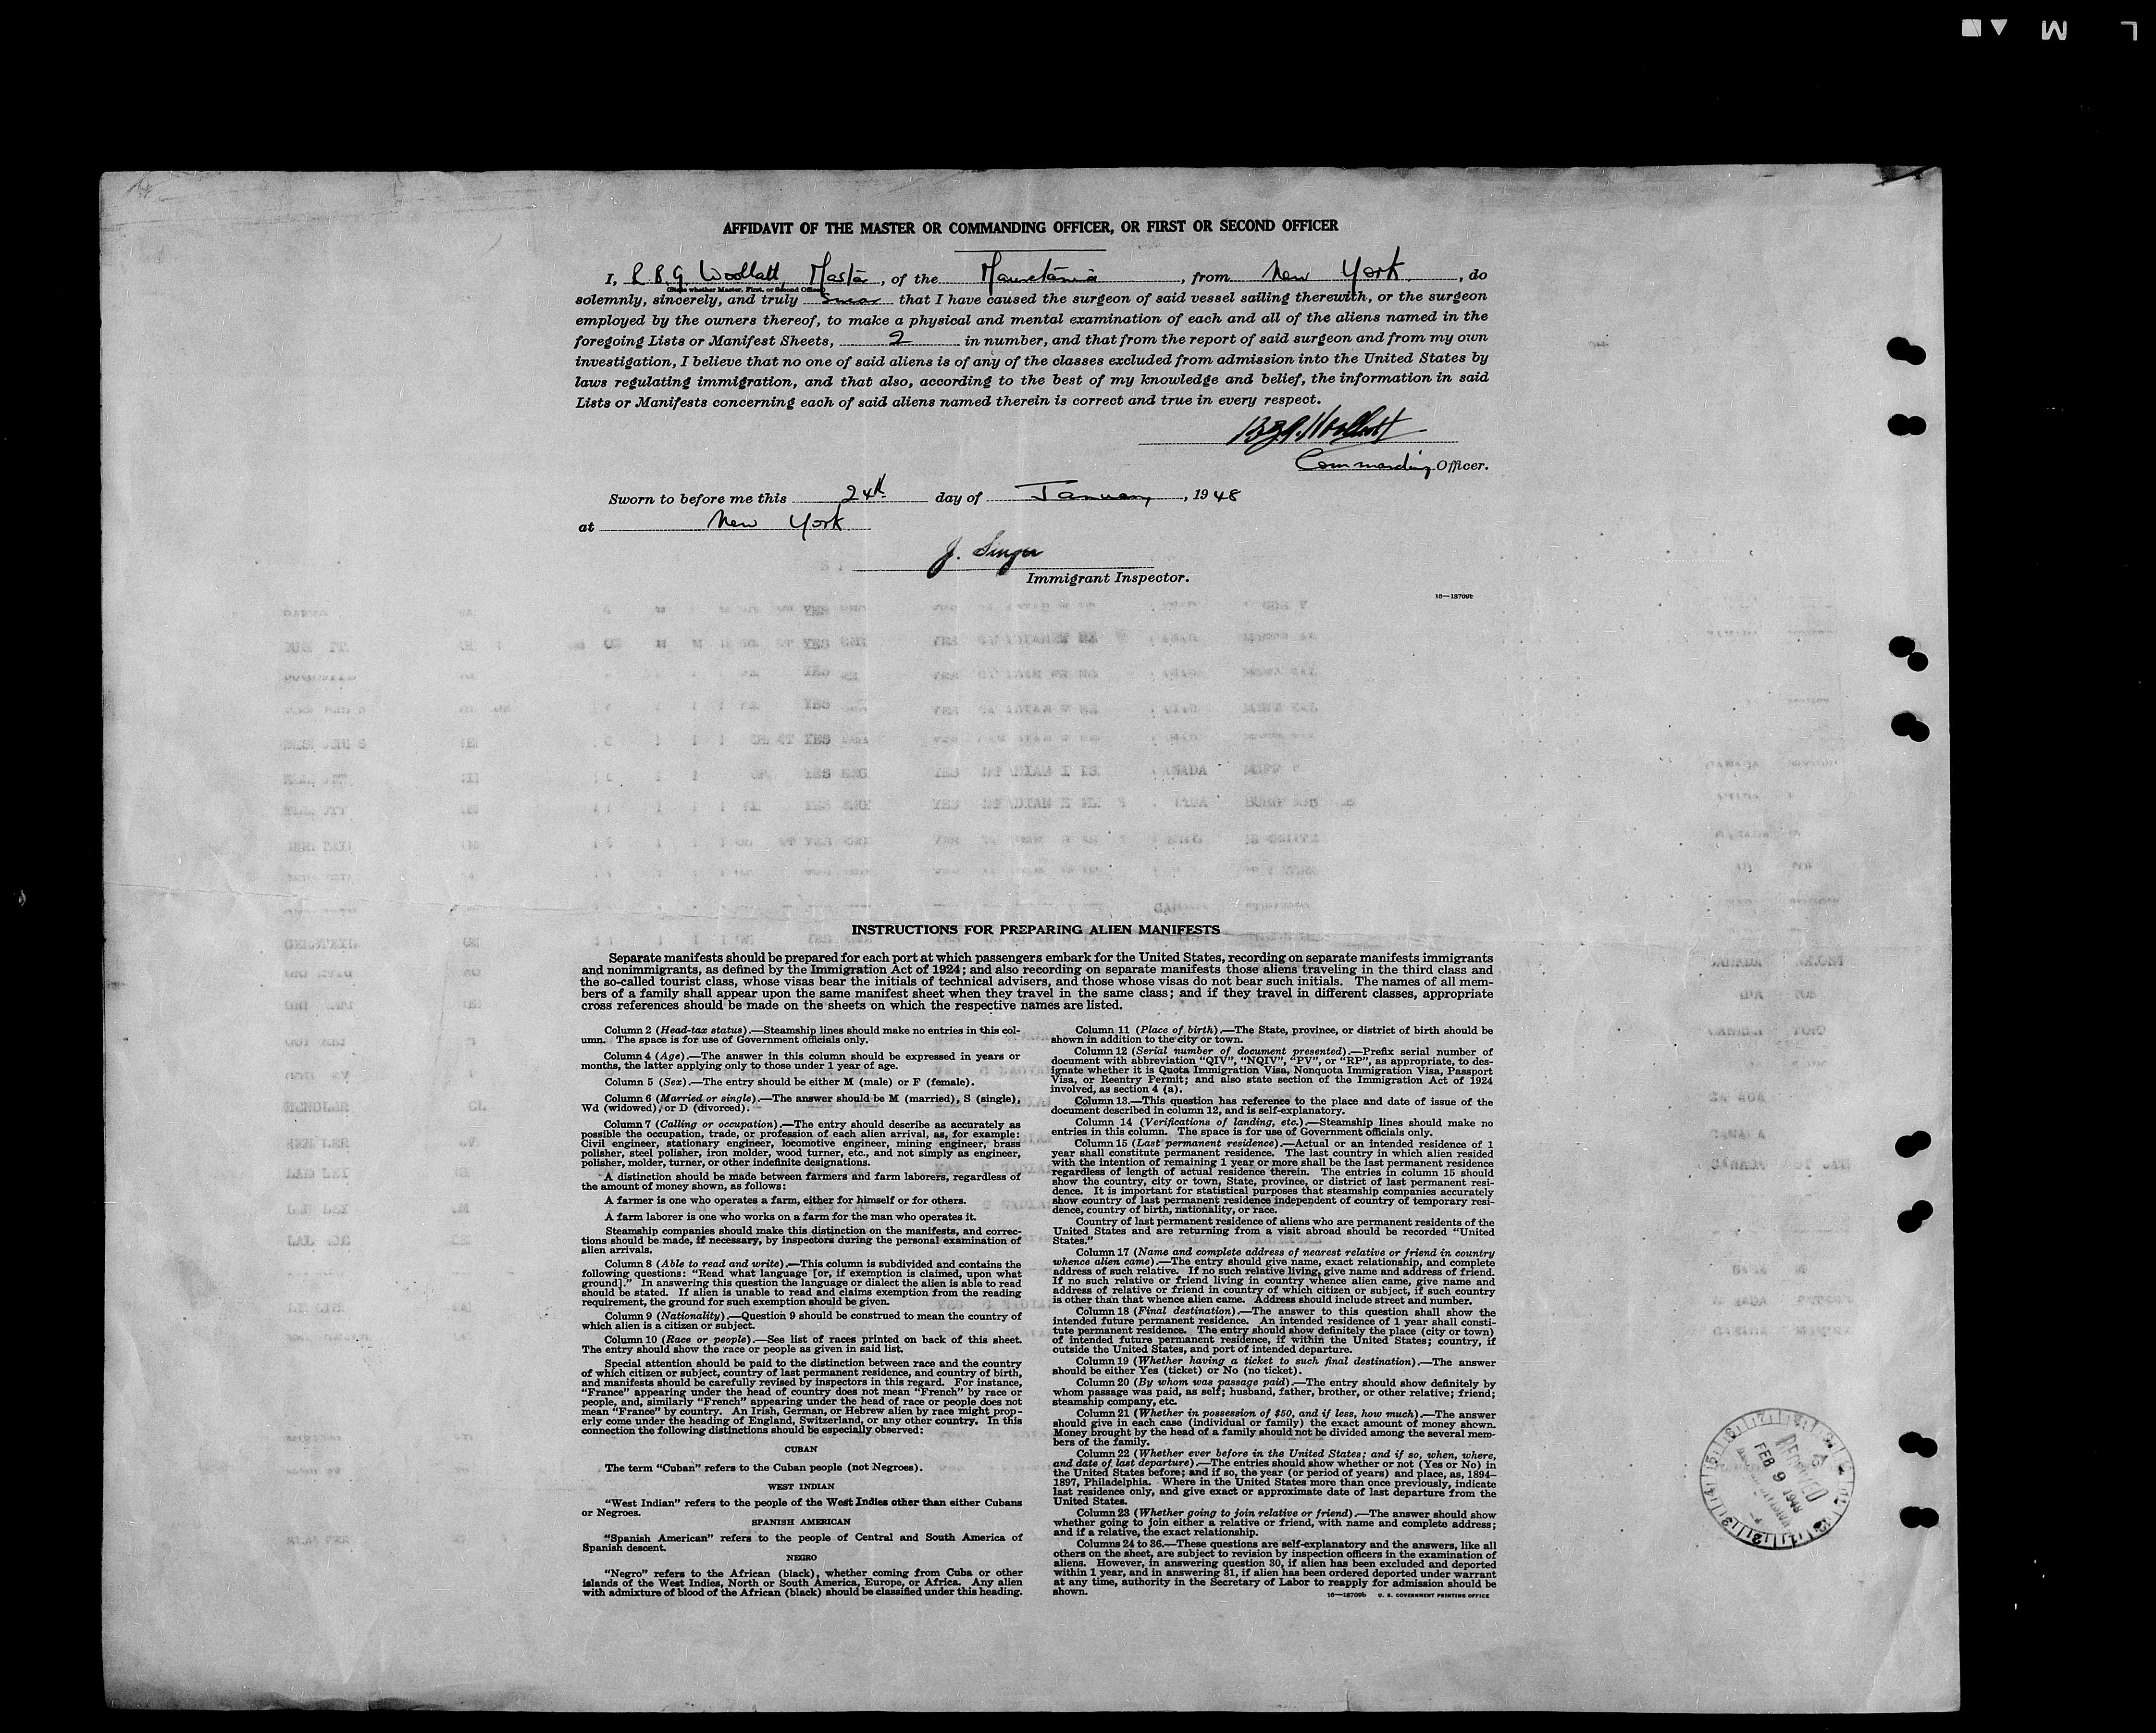 L M
AFFIDAVIT OF THE MASTER OR COMMANDING OFFICER, OR FIRST OR SECOND OFFICER
I, R B G Woollatt, Master, of the Mauretania, from New York, do
(State whether Master, First, or Second Officer)
solemnly, sincerely, and truly swear that I have caused the surgeon of said vessel sailing therewith, or the surgeon
employed by the owners thereof, to make a physical and mental examination of each and all of the aliens named in the
foregoing Lists or Manifest Sheets, 2 in number, and that from the report of said surgeon and from my own
investigation, I believe that no one of said aliens is of any of the classes excluded from admission into the United States by
laws regulating immigration, and that also, according to the best of my knowledge and belief, the information in said
Lists or Manifests concerning each of said aliens named therein is correct and true in every respect.
Commanding Officer.
Sworn to before me this 24th day of January, 1948
at New York
J. Singer
Immigrant Inspector.
16—18709b
INSTRUCTIONS FOR PREPARING ALIEN MANIFESTS
Separate manifests should be prepared for each port at which passengers embark for the United States, recording on separate manifests immigrants
and nonimmigrants, as defined by the Immigration Act of 1924; and also recording on separate manifests those aliens traveling in the third class and
the so-called tourist class, whose visas bear the initials of technical advisers, and those whose visas do not bear such initials. The names of all mem-
bers of a family shall appear upon the same manifest sheet when they travel in the same class; and if they travel in different classes, appropriate
cross references should be made on the sheets on which the respective names are listed.
Column 2 (Head-tax status).—Steamship lines should make no entries in this col-
umn. The space is for use of Government officials only.
Column 4 (Age).—The answer in this column should be expressed in years or
months, the latter applying only to those under 1 year of age.
Column 5 (Sex).—The entry should be either M (male) or F (female).
Column 6 (Married or single).—The answer should be M (married), S (single),
Wd (widowed), or D (divorced).
Column 7 (Calling or occupation).—The entry should describe as accurately as
possible the occupation, trade, or profession of each alien arrival, as, for example:
Civil engineer, stationary engineer, locomotive engineer, mining engineer, brass
polisher, steel polisher, iron molder, wood turner, etc., and not simply as engineer,
polisher, molder, turner, or other indefinite designations.
A distinction should be made between farmers and farm laborers, regardless of
the amount of money shown, as follows:
A farmer is one who operates a farm, either for himself or for others.
A farm laborer is one who works on a farm for the man who operates it.
Steamship companies should make this distinction on the manifests, and correc-
tions should be made, if necessary, by inspectors during the personal examination of
alien arrivals.
Column 8 (Able to read and write).—This column is subdivided and contains the
following questions: "Read what language [or, if exemption is claimed, upon what
ground]." In answering this question the language or dialect the alien is able to read
should be stated. If alien is unable to read and claims exemption from the reading
requirement, the ground for such exemption should be given.
Column 9 (Nationality).—Question 9 should be construed to mean the country of
which alien is a citizen or subject.
Column 10 (Race or people).—See list of races printed on back of this sheet.
The entry should show the race or people as given in said list.
Special attention should be paid to the distinction between race and the country
of which citizen or subject, country of last permanent residence, and country of birth,
and manifests should be carefully revised by inspectors in this regard. For instance,
"France" appearing under the head of country does not mean "French" by race or
people, and, similarly "French" appearing under the head of race or people does not
mean "France" by country. An Irish, German, or Hebrew alien by race might prop-
erly come under the heading of England, Switzerland, or any other country. In this
connection the following distinctions should be especially observed:
CUBAN
The term "Cuban" refers to the Cuban people (not Negroes).
WEST INDIAN
"West Indian" refers to the people of the West Indies other than either Cubans
or Negroes.
SPANISH AMERICAN
"Spanish American" refers to the people of Central and South America of
Spanish descent.
NEGRO
"Negro" refers to the African (black), whether coming from Cuba or other
islands of the West Indies, North or South America, Europe, or Africa. Any alien
with admixture of blood of the African (black) should be classified under this heading.
Column 11 (Place of birth).—The State, province, or district of birth should be
shown in addition to the city or town.
Column 12 (Serial number of document presented).—Prefix serial number of
document with abbreviation "QIV", "NQIV", "PV", or "RP", as appropriate, to des-
ignate whether it is Quota Immigration Visa, Nonquota Immigration Visa, Passport
Visa, or Reentry Permit; and also state section of the Immigration Act of 1924
involved, as section 4 (a).
Column 13.—This question has reference to the place and date of issue of the
document described in column 12, and is self-explanatory.
Column 14 (Verifications of landing, etc.).—Steamship lines should make no
entries in this column. The space is for use of Government officials only.
Column 15 (Last permanent residence).—Actual or an intended residence of 1
year shall constitute permanent residence. The last country in which alien resided
with the intention of remaining 1 year or more shall be the last permanent residence
regardless of length of actual residence therein. The entries in column 15 should
show the country, city or town, State, province, or district of last permanent resi-
dence. It is important for statistical purposes that steamship companies accurately
show country of last permanent residence independent of country of temporary resi-
dence, country of birth, nationality, or race.
Country of last permanent residence of aliens who are permanent residents of the
United States and are returning from a visit abroad should be recorded "United
States."
Column 17 (Name and complete address of nearest relative or friend in country
whence alien came).—The entry should give name, exact relationship, and complete
address of such relative. If no such relative living, give name and address of friend.
If no such relative or friend living in country whence alien came, give name and
address of relative or friend in country of which citizen or subject, if such country
is other than that whence alien came. Address should include street and number.
Column 18 (Final destination).—The answer to this question shall show the
intended future permanent residence. An intended residence of 1 year shall consti-
tute permanent residence. The entry should show definitely the place (city or town)
of intended future permanent residence, if within the United States; country, if
outside the United States, and port of intended departure.
Column 19 (Whether having a ticket to such final destination).—The answer
should be either Yes (ticket) or No (no ticket).
Column 20 (By whom was passage paid).—The entry should show definitely by
whom passage was paid, as self; husband, father, brother, or other relative; friend;
steamship company, etc.
Column 21 (Whether in possession of $50, and if less, how much).—The answer
should give in each case (individual or family) the exact amount of money shown.
Money brought by the head of a family should not be divided among the several mem-
bers of the family.
Column 22 (Whether ever before in the United States; and if so, when, where,
and date of last departure).—The entries should show whether or not (Yes or No) in
the United States before; and if so, the year (or period of years) and place, as, 1894–
1897, Philadelphia. Where in the United States more than once previously, indicate
last residence only, and give exact or approximate date of last departure from the
United States.
Column 23 (Whether going to join relative or friend).—The answer should show
whether going to join either a relative or friend, with name and complete address;
and if a relative, the exact relationship.
Columns 24 to 36.—These questions are self-explanatory and the answers, like all
others on the sheet, are subject to revision by inspection officers in the examination of
aliens. However, in answering question 30, if alien has been excluded and deported
within 1 year, and in answering 31, if alien has been ordered deported under warrant
at any time, authority in the Secretary of Labor to reapply for admission should be
shown.
16—18709b U. S. GOVERNMENT PRINTING OFFICE
RECEIVED
FEB 9 1948